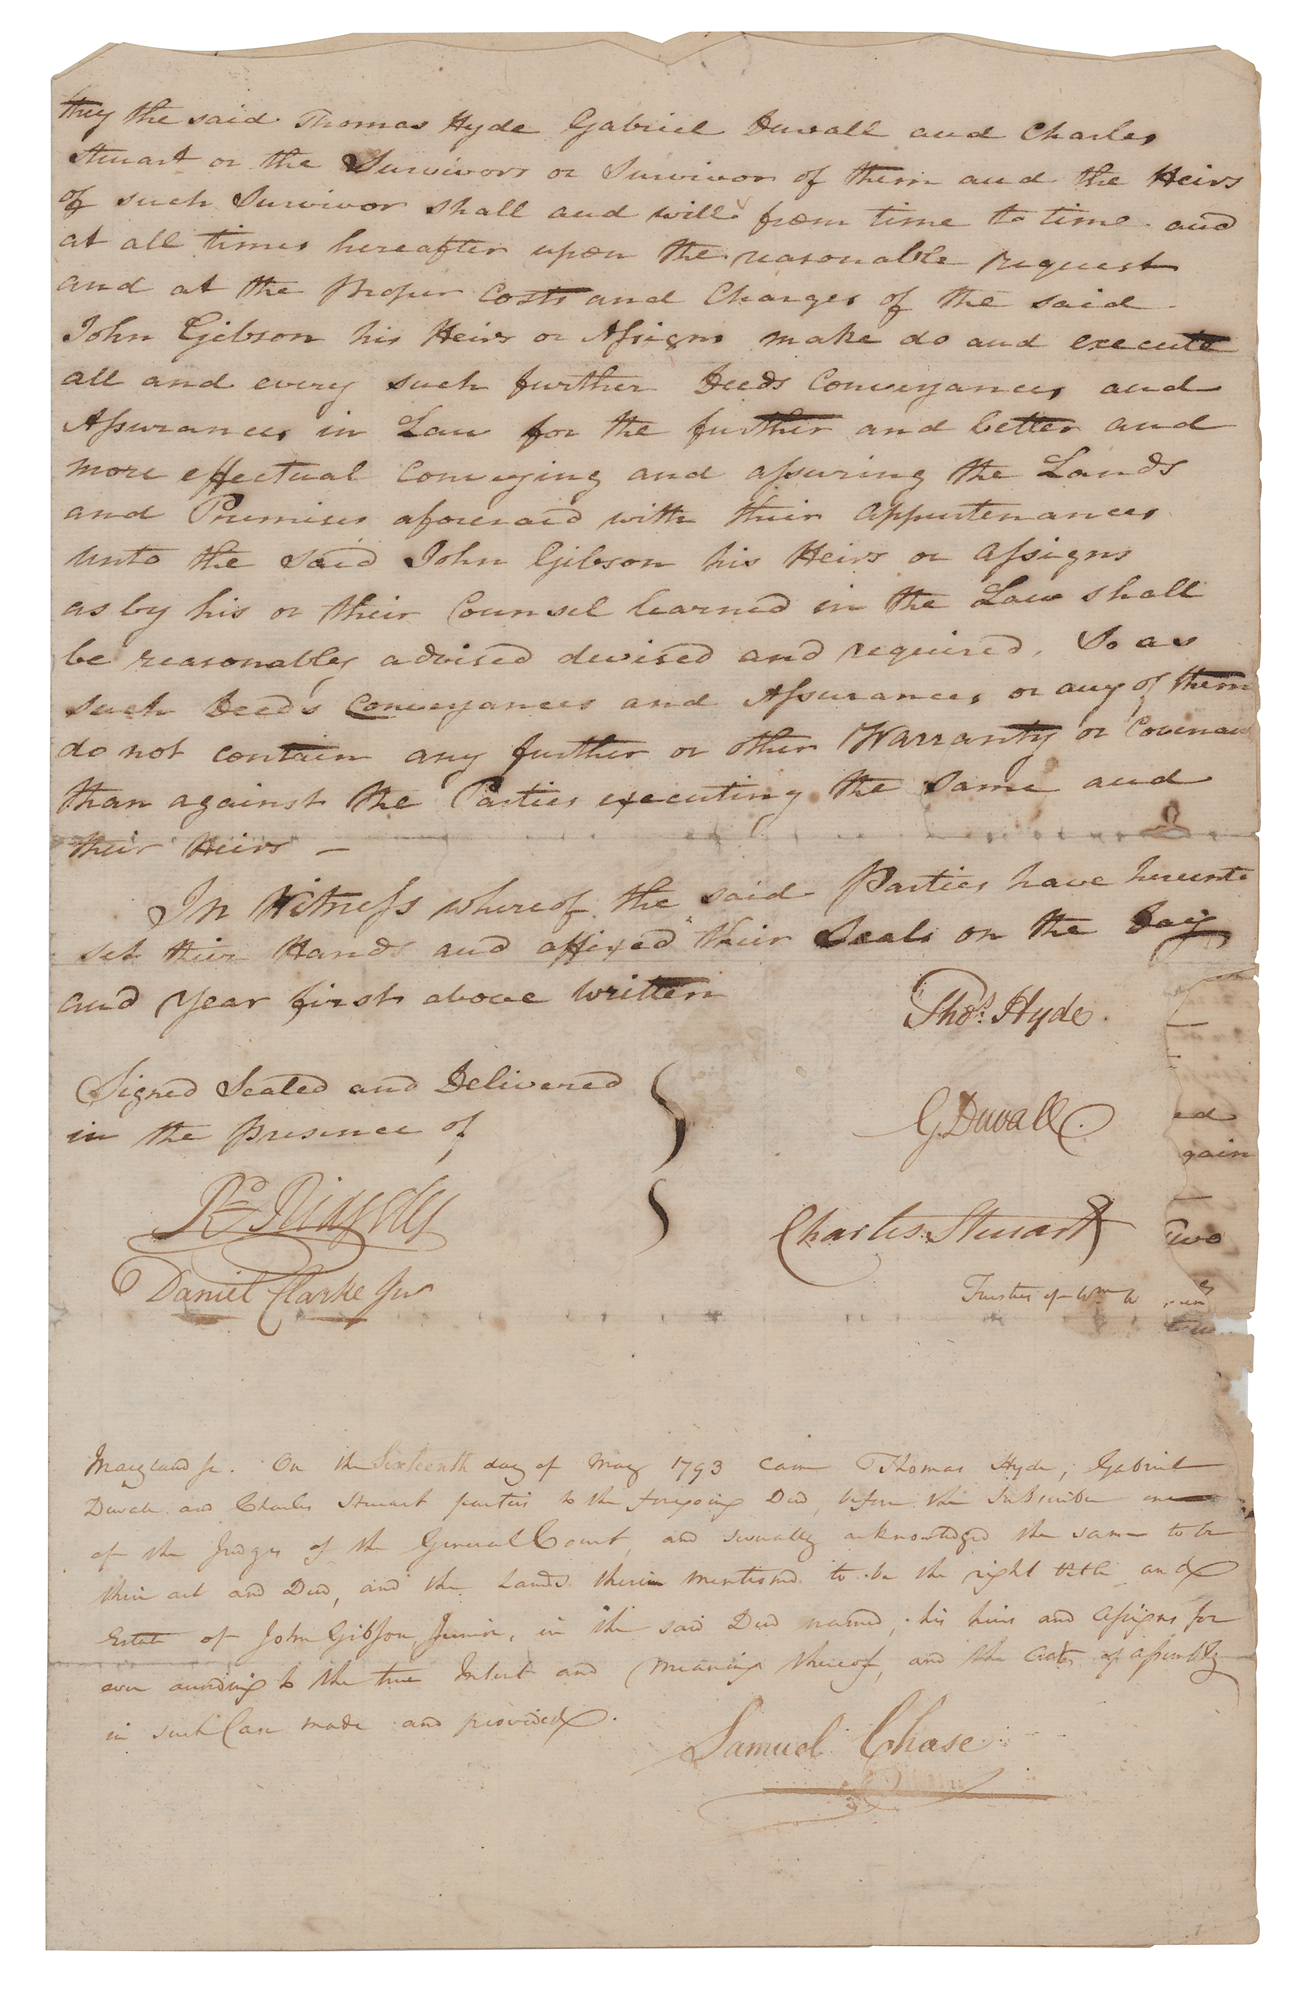 they the said Thomas Hyde Gabriel Duvall and Charles
Steuart or the Survivors or Survivor of them and the Heirs
of such Survivor shall and will from time to time and
at all times hereafter upon the reasonable request
and at the Proper Costs and Charges of the said
John Gibson his Heirs or Assigns make do and execute
all and every such further Deeds Conveyances and
Assurances in Law for the further and better and
more effectual Conveying and assuring the Lands
and Premises aforesaid with their appurtenances
unto the said John Gibson his Heirs or assigns
as by his or their Counsel learned in the Law shall
be reasonably advised devised and required. So as
such Deeds Conveyances and Assurances or any of them
do not contain any further or other Warranty or Covenant
than against the Parties executing the same and
their Heirs —
In Witness whereof the said Parties have hereunto
set their Hands and affixed their Seals on the Day
and Year first above written
Thos. Hyde.
Signed Sealed and Delivered
in the presence of
G. Duvall.
Charles Steuart
Daniel Clarke Junr
Trustees of Wm W
ed
gain
Two
Maryland sc. On the Sixteenth day of May 1793 came Thomas Hyde, Gabriel
Duvall and Charles Steuart parties to the foregoing Deed, before the Subscriber one
of the Judges of the General Court, and severally acknowledged the same to be
their act and Deed, and the Lands therein mentioned to be the right title and
Estate of John Gibson, Junior, in the said Deed named, his heirs and assigns for
ever according to the true Intent and Meaning thereof, and the Acts of Assembly
in such Case made and provided.
Samuel Chase